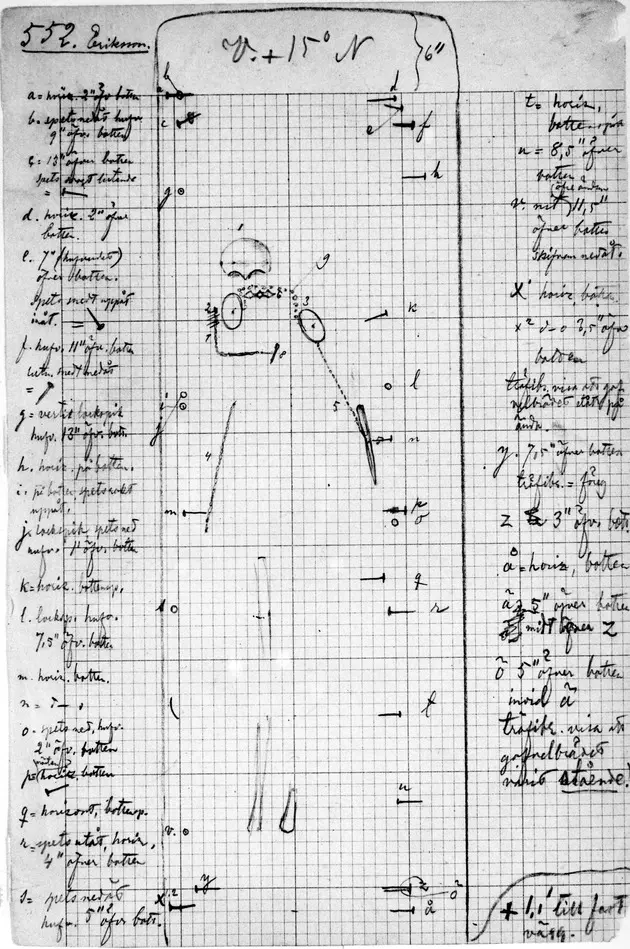 552. Eriksson.
V. + 15° N
6"
a = horiz. 2" öfv. botten
b. spets nedåt hufv.
9" öfv. botten
c = 13" öfver botten
spets
=
d. horiz. 2" öfver
botten.
e. 7" (hufvudet)
öfver botten.
Spets snedt uppåt
inåt. =
f. hufv. 11" öfv. botten
snedt nedåt
=
g = vertik lockspik
hufv. 13" öfv. bott.
h. horiz. på botten.
i. på botten spets rakt
uppåt.
j. lockspik spets ned
hufv. 1" öfv. botten
k = horiz. bottenp.
l. locksp. hufv.
7,5" öfv. botten
m. horiz. botten.
n = d—o
o. spets ned, hufv.
2" öfv. botten
p. horiz botten
q = horizont, bottenp.
r = spets utåt, horiz,
4" öfver botten
s = spets nedåt
hufv. 5" öfver bott.
b
a
d
c
e
f
h
g
1
9
2
3
k
7
8
i
l
j
5
n
4
m
p
o
q
s
r
t
u
v.
y
z
ö
x
2
å
t = horiz,
botten
u = 8,5" öfver
botten
(öfre änden
v. nit 11,5"
öfver botten
skifvan nedåt.
x' horiz botten.
x² d—o 3,5" öfv
botten
träfibr. visa att gaf-
velbrädet stått på
ända.
y. 7,5" öfver botten
träfibr. = föreg
z 3" öfv. bott.
å = horiz, botten
ä = 5" öfver botten
midt öfver z
ö 5" öfver botten
invid ä
träfibr. visa att
gafvelbrädet
varit stående!
+ 1,1' till fast
vägg.